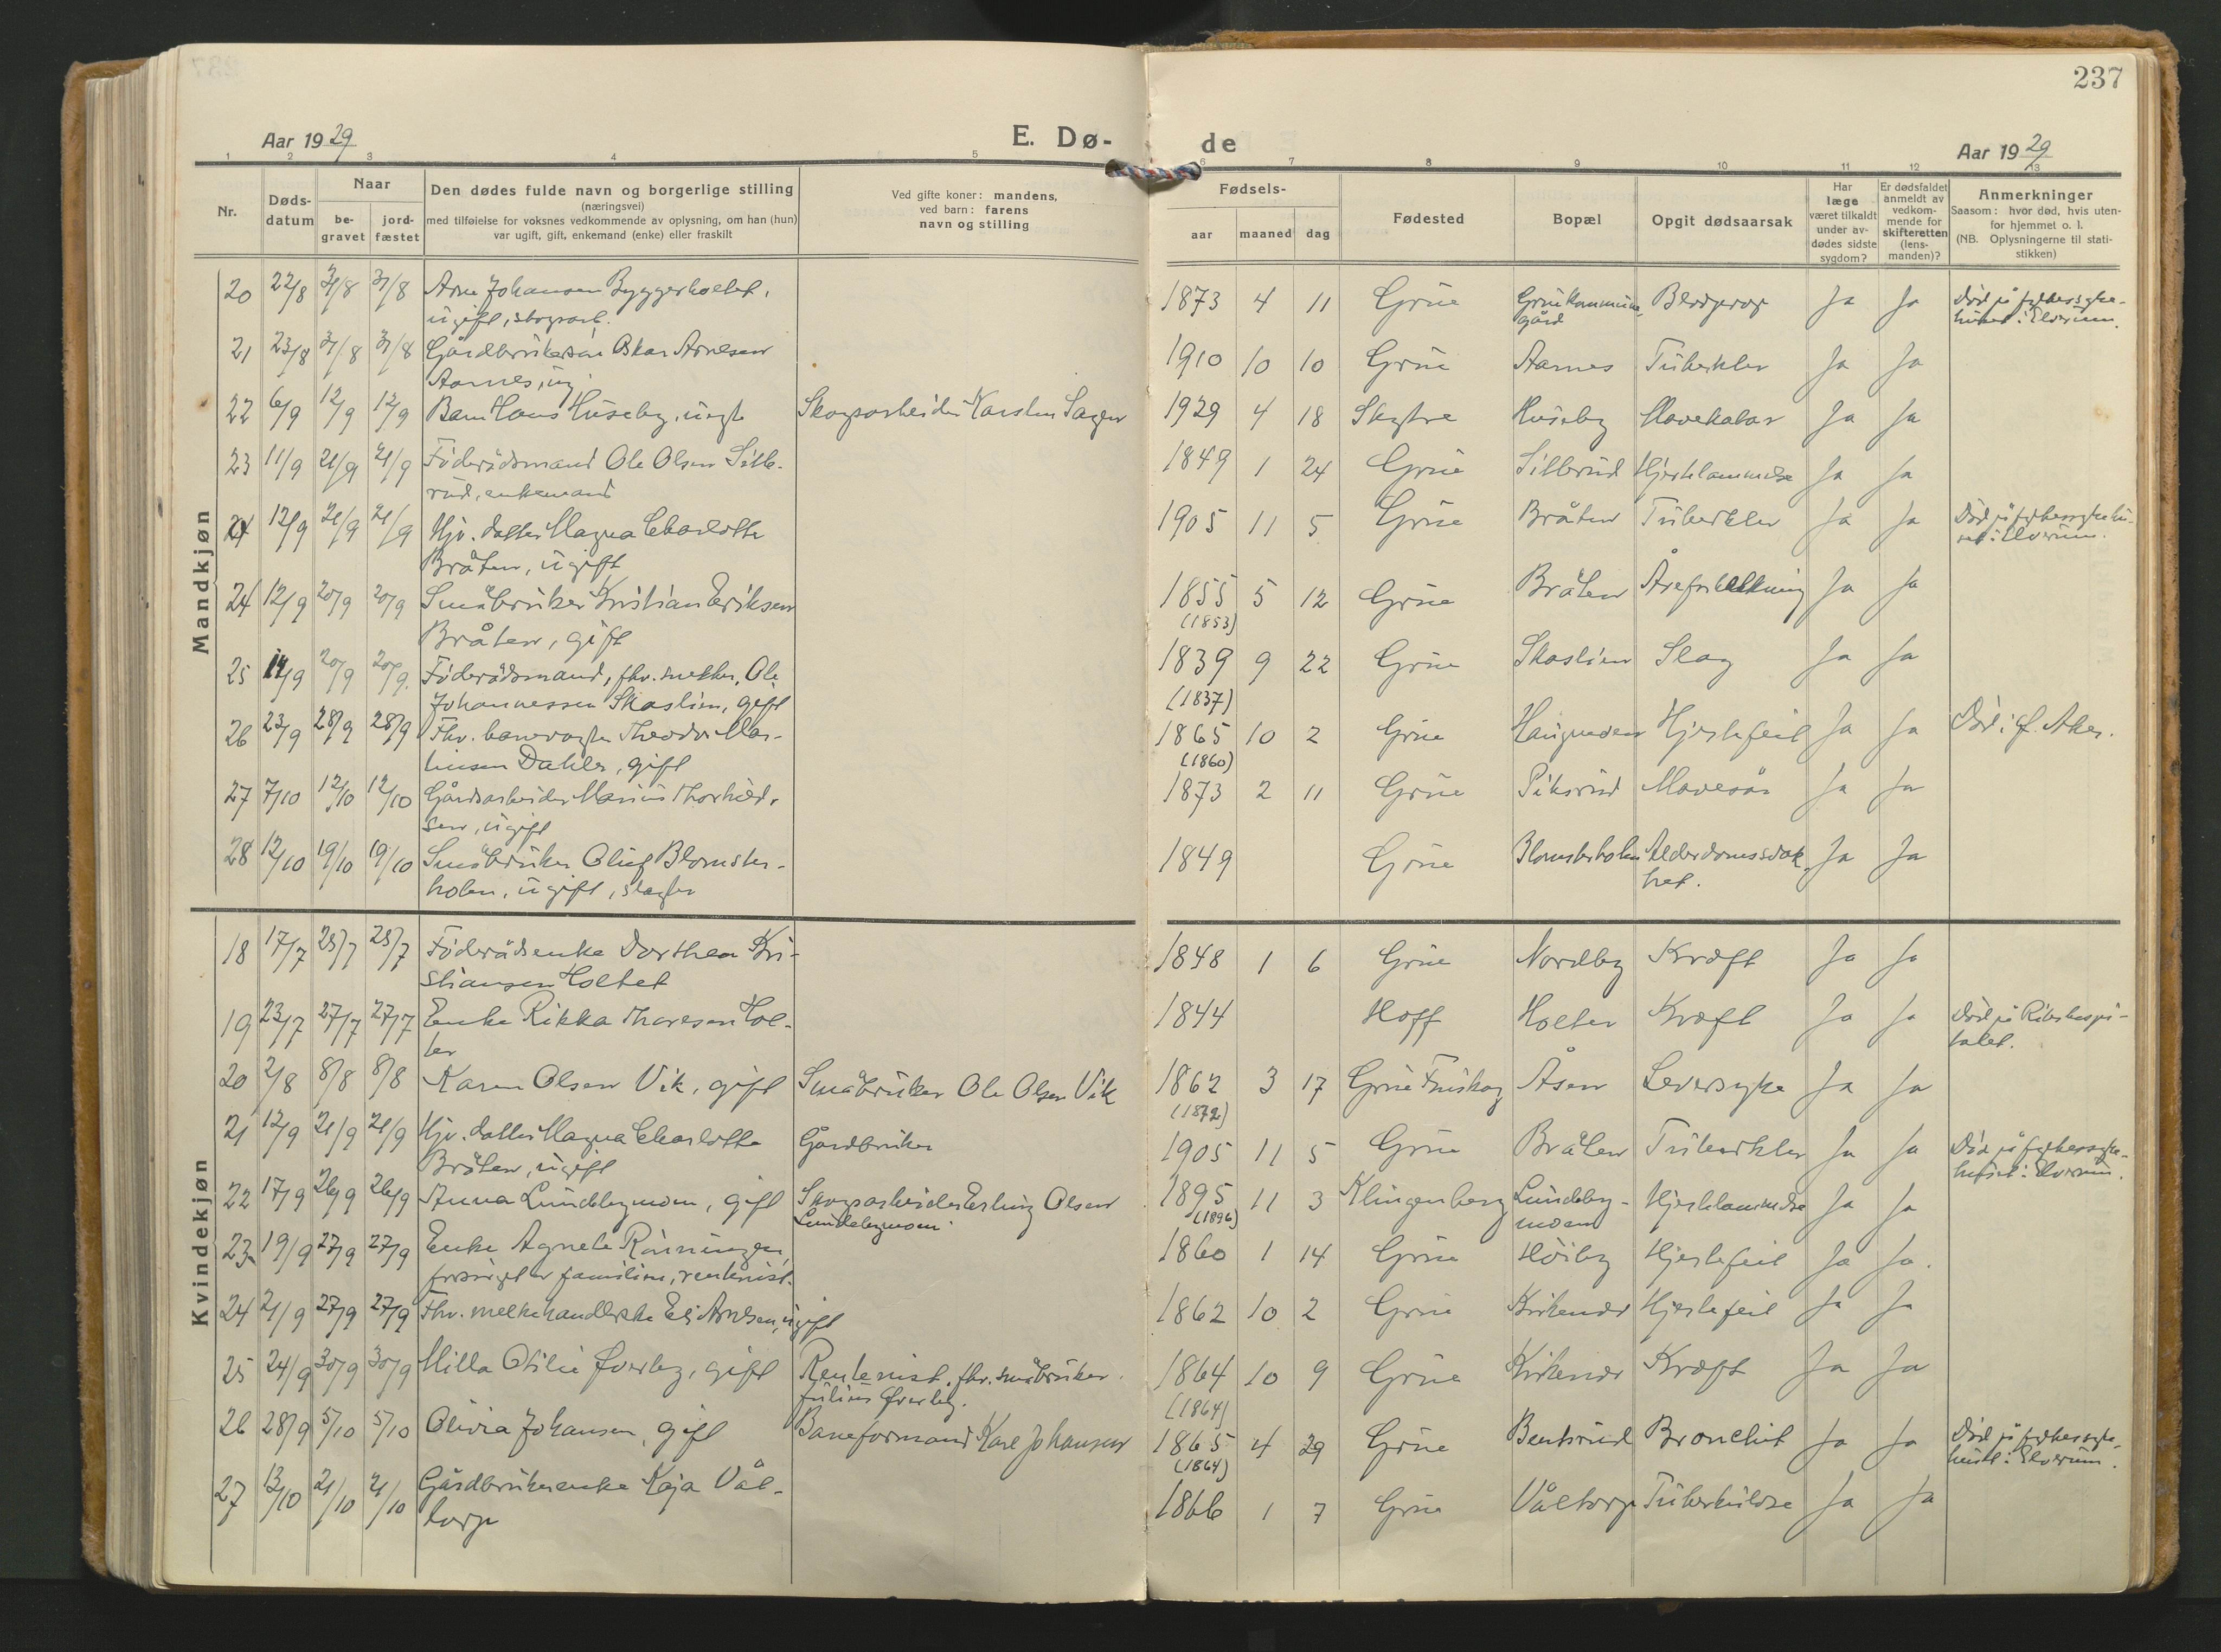 237
Aar 1929 E. Dø- de Aar 1929
1 2 3 4 5 6 7 8 9 10 11 12 13
Nr.
Døds-
datum
Naar
be-
gravet
jord-
fæstet
Den dødes fulde navn og borgerlige stilling
(næringsvei)
med tilføielse for voksnes vedkommende av oplysning, om han (hun)
var ugift, gift, enkemand (enke) eller fraskilt
Ved gifte koner: mandens,
ved barn: farens
navn og stilling
Fødsels-
aar maaned dag
Fødested
Bopæl
Opgit dødsaarsak
Har
læge
været tilkaldt
under av-
dødes sidste
sygdom?
Er dødsfaldet
anmeldt av
vedkom-
mende for
skifteretten
(lens-
manden)?
Anmerkninger
Saasom: hvor død, hvis uten-
for hjemmet o. l.
(NB. Oplysningerne til stati-
stikken)
Mandkjøn
20 22/8 31/8 31/8 Arne Johansen Byggerholtet, 1873 4 11 Grue Grue kommune- Ja Ja Død på fylkessyke-
ugift, skogsarb. gård huset i Elverum.
21 23/8 31/8 31/8 Gårdbrukersøn Oskar Arnesen 1910 10 10 Grue Aarnes Tuberkler Ja Ja
Aarnes, ug.
22 6/9 12/9 12/9 Barn Hans Huseby, Skogsarbeider Karsten 1929 4 18 Huseby Mavekatar Ja Ja
23 11/9 21/9 21/9 Föderådsmand Ole Olsen Sille- 1849 1 24 Grue Sillerud Hjertelammelse Ja Ja
rud, enkemand
24 12/9 21/9 21/9 Hjv. datter Magna Charlotte 1905 11 5 Grue Bråten Tuberkler Ja Ja Død på fylkessykehu-
Bråten, ugift set i Elverum.
24 12/9 20/9 20/9 Småbruker Kristian Eriksen 1855 5 12 Grue Bråten Åreforkalkning Ja Ja
Bråten, gift (1853)
25 14/9 20/9 20/9. Föderådsmand, fhv. Ole 1839 9 22 Grue Skaslien Slag Ja Ja
Johannessen Skaslien, gift (1837)
26 23/9 28/9 28/9 Fhv. banevogter Theodor Mar- 1865 10 2 Grue Haugmoen Hjertefeil Ja Ja Død i Aker.
tinsen Dahler, gift (1860)
27 7/10 12/10 12/10 Gårdsarbeider Marius Thorkild- 1873 2 11 Grue Piksrud Mavesår Ja Ja
sen, ugift
28 12/10 19/10 19/10 Småbruker Oluf Blomster- 1849 Grue Blomsterholen Alderdomssvak- Ja Ja
holen, ugift, slagter het.
Kvindekjøn
18 17/7 25/7 25/7 Föderådsenke Dorthea Kri- 1848 1 6 Grue Nordby Kræft Ja Ja
stiansen Holtet
19 23/7 27/7 27/7 Enke Rikka Thoresen Hol- 1844 Hoff Holter Kræft Ja Ja Død på Rikshospi-
ter talet.
20 2/8 8/8 8/8 Karen Olsen Vik, gift Småbruker Ole Olsen Vik 1862 3 17 Grue Finskog Åsen Leversyke Ja Ja
(1872)
21 12/9 21/9 21/9 Hjv. datter Magna Charlotte Gårdbruker 1905 11 5 Grue Bråten Tuberkler Ja Ja Død på fylkessyke-
Bråten, ugift huset i Elverum.
22 17/9 26/9 26/9 Anna Lundebymoen, gift Skogsarbeider Erling Olsen 1895 11 3 Klingenberg Lundeby- Hjertelammelse Ja Ja
Lundebymoen. (1896) moen
23 19/9 27/9 27/9 Enke Agnete Rönningen, 1860 1 14 Grue Höiby Hjertefeil Ja Ja.
forsörget av familien, rentenist.
24 21/9 27/9 27/9 Fhv. melkehandlerske Eli Arnesen, ugift 1862 10 2 Grue Kirkenær Hjertefeil Ja Ja
25 24/9 30/9 30/9 Milla Otilie Øverby, gift Rentenist, fhv. småbruker 1864 10 9 Grue Kirkenær Kræft Ja Ja
Julius Øverby. (1864)
26 28/9 5/10 5/10 Olivia Johansen, gift Baneformand Karl Johansen 1865 4 29 Grue Bentsrud Bronchit Ja Ja Død på fylkessyke-
(1864) huset i Elverum.
27 13/10 21/10 21/10 Gårdbrukerenke Kaja Vål- 1866 1 7 Grue Våltorp Tuberkulose Ja Ja
torp